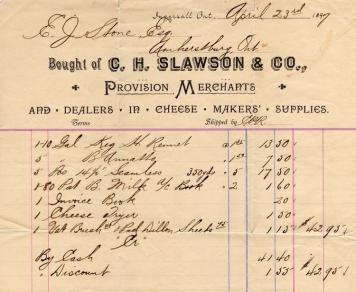 Ingersoll Ont. April 23rd 1897
E. J. Stone, Esq.
Amherstburg Ont
Bought of C. H. SLAWSON & CO.,
PROVISION MERCHANTS
AND · DEALERS · IN · CHEESE · MAKERS' · SUPPLIES.
Terms Shipped by CPR
1 10 Gal Keg H. Rennet 13 50
5 B. Annatto 1 50 7 50
5 Bo 14½ Seamless 350yds 5 17 50
1 80 Pat B. Milk a/c Book 2 1 60
1 Invoice Book 20
1 Cheese Tryer 1 50
1 Vat Brush Dillon Sheets 1 15 $42.95
"Cr"
By Cash 41 40
" Discount 1 55 $42.95